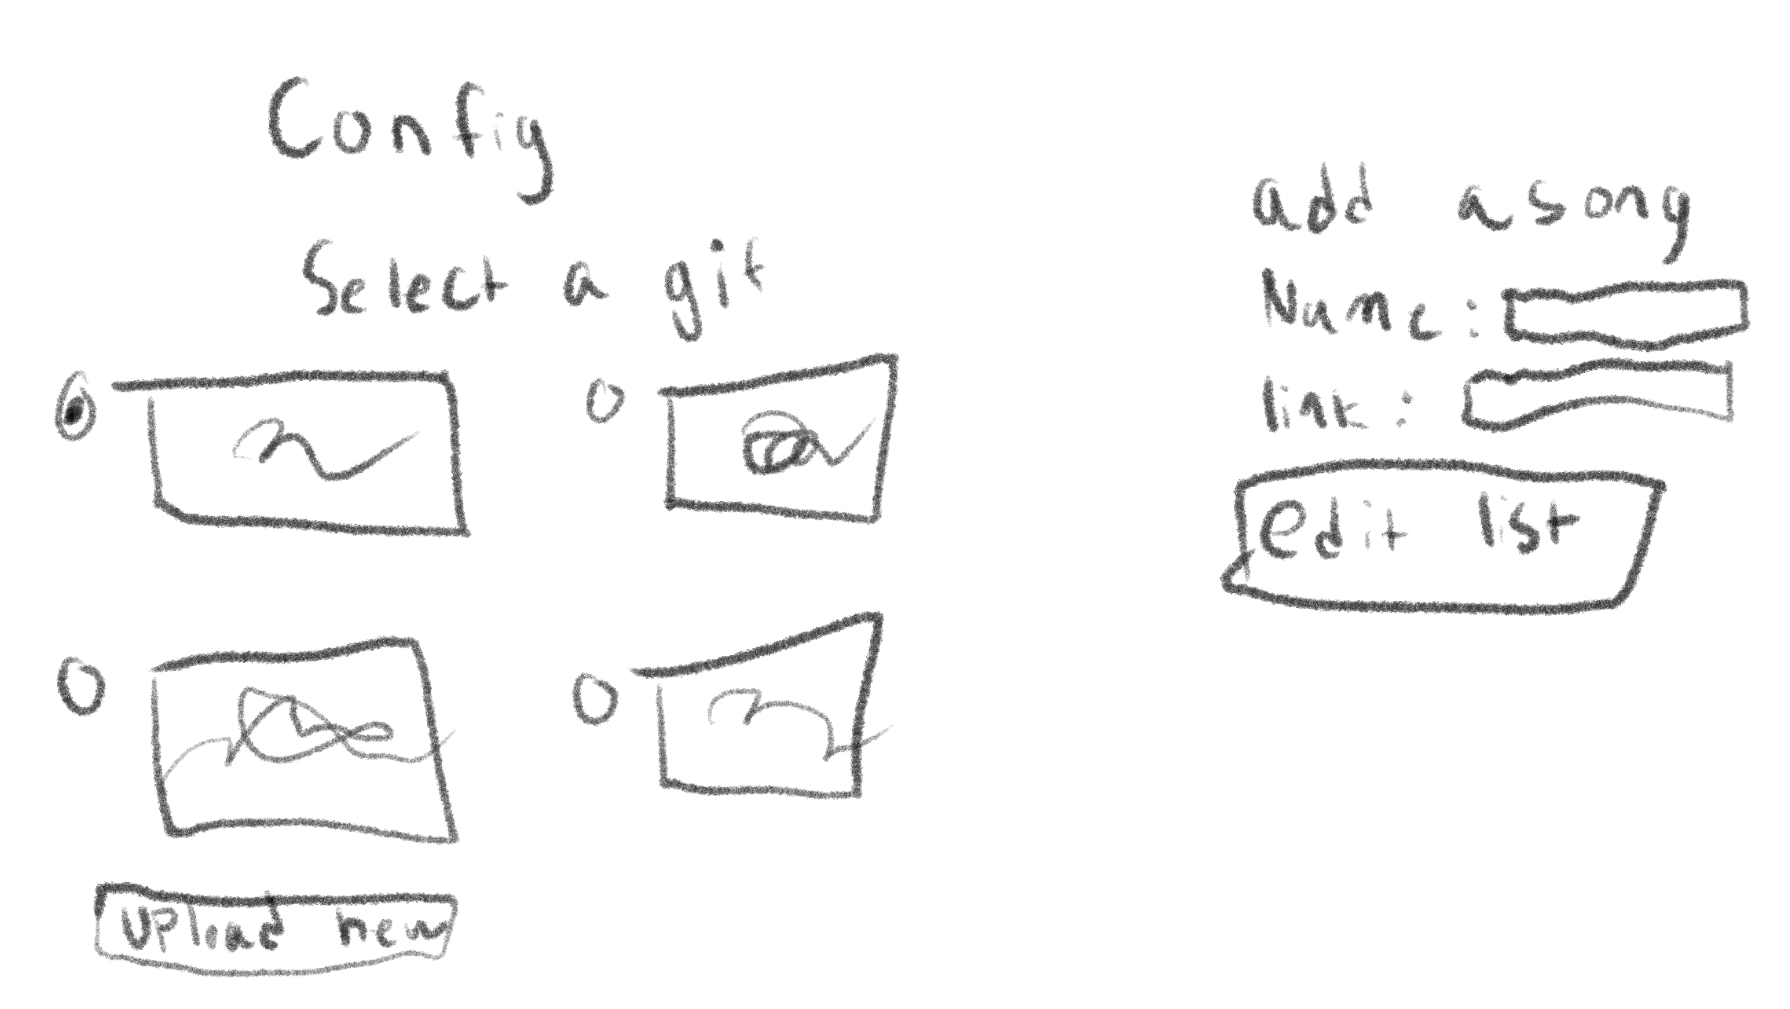 Config
Select a gif
upload new
add a song
Name:
link:
edit list